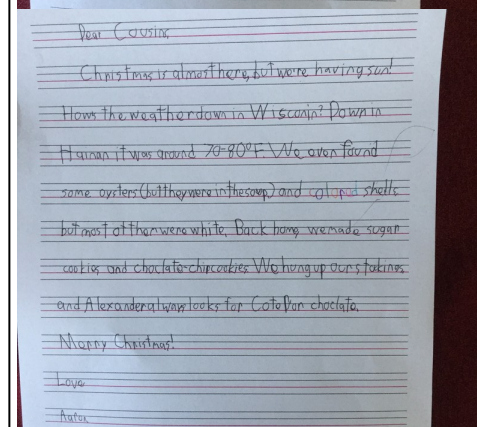 Dear Cousins
Christmas is almost here, but we're having sun!
Hows the weather down in Wisconin? Down in
Hainan it was around 70-80°F. We even found
some oysters (but they were in the soup) and colored shells
but most of them were white. Back home we made sugar
cookies and choclate-chip cookies We hung up our stokings
and Alexander always looks for Cote D'or choclate.
Merry Christmas!
Love